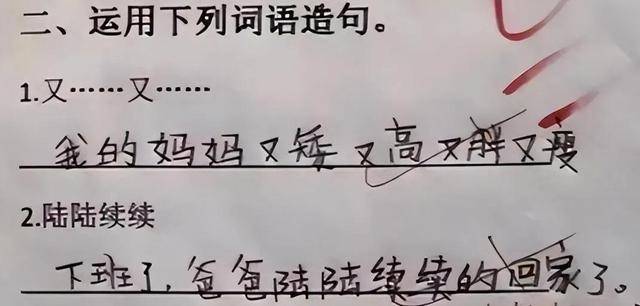 二、运用下列词语造句。
1.又……又……
我的妈妈又矮又高又胖又瘦
2.陆陆续续
下班了,爸爸陆陆续续的回家了。